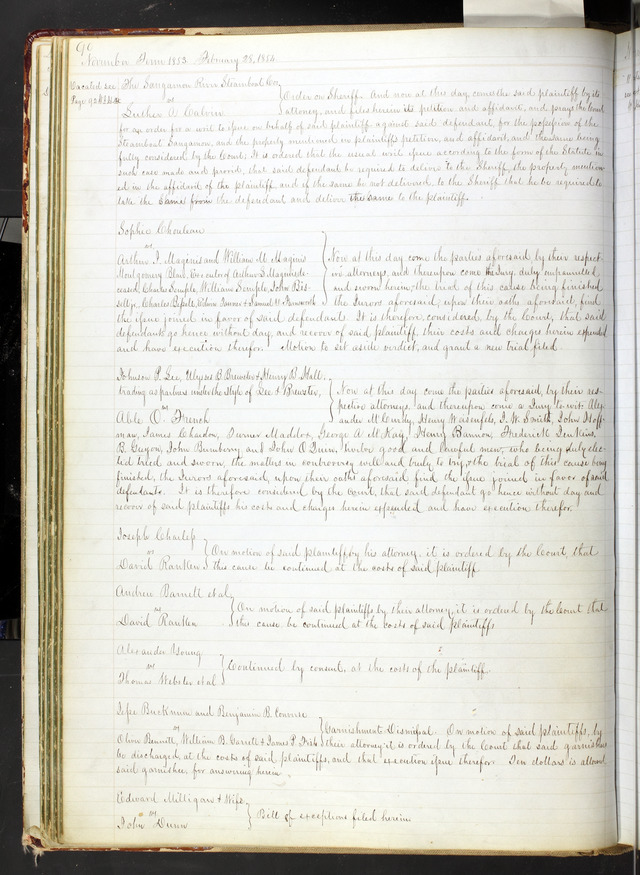 90
November Term 1853 February 25, 1854
Vacated see
Page
The Sangamon River Steamboat Co
vs
Luther A Calvin
Order on Sheriff. And now at this day, comes the said plaintiff by its
attorney, and files herein its petition and affidavit, and prays the Court
for an order for a writ to issue on behalf of said plaintiff against said defendant, for the possession of the
Steamboat Sangamon, and the property mentioned in plaintiffs petition, and affidavit, and the same being
fully considered by the Court. It is ordered that the usual writ issue according to the form of the Statute in
such case made and provid, that said defendant be required to deliver to the Sheriff, the property mention-
ed in the affidavit of the plaintiff and if the same be not delivered to the Sheriff that he be required to
take the same from the defendant and deliver the same to the plaintiff.
Sophie Chouteau
vs
Arthur I. Maginis and William M. Maginis
Montgomery Blair, Executor of Arthur L Maginis de-
ceased, Charles Semple, William Semple, John Bis-
sell, Charles & Samuel H.
Now at this day come the parties aforesaid by their respect-
ive attorneys, and thereupon come the Jury, duly empannelled,
and sworn herein, the trial of this cause being finished
the Jurors aforesaid, upon their oaths aforesaid, find
the issue joined in favor of said defendant. It is therefore, considered, by the Court, that said
defendants go hence without day, and recover of said plaintiff their costs and charges herein expended
and have execution therefor. Motion to set aside verdict, and grant a new trial filed
Johnson P. Lee, Ulysses B Brewster & Henry B Hall,
trading as partners under the style of Lee & Brewster,
vs
Able O. French
Now at this day come the parties aforesaid, by their res-
pective attorneys, and thereupon come a Jury to wit: Alex-
ander McCurdy, Henry Wasenfels, J. W. Smith, John Hoff-
man, James Chardon, Turner Maddox, George A McKay, Henry Bannon, Frederick Jenkins,
B. Guyon, John Brimberry, and John O'Quin, twelve good and lawful men, who being duly elec-
ted tried and sworn, the matters in controversy well and truly to try & the trial of this cause being
finished, the Jurors aforesaid, upon their oaths aforesaid find the issue joined in favor of said
defendants. It is therefore considered by the court, that said defendant go hence without day and
recover of said plaintiffs his costs and charges herein expended and have execution therefor.
Joseph Charless
vs
David Ranken
On motion of said plaintiff, by his attorney, it is ordered by the Court, that
this cause be continued at the costs of said plaintiff
Andrew Barnett et al
vs
David Ranken
On motion of said plaintiffs by their attorney, it is ordered by the Court that
this cause be continued at the costs of said plaintiffs
Alexander Young
vs
Thomas Webster et al
Continued by consent, at the costs of the plaintiff.
Jesse Buckmun and Benjamin B. Connroe
vs
Oliver Bennett, William B. Garrett & James P. Fisk
Garnishment Dismissal. On motion of said plaintiffs, by
their attorney it is ordered by the Court that said garnishee
be discharged, at the costs of said plaintiffs, and that execution issue therefor. Ten dollars is allowed,
said garnishee, for answering herein.
Edward Milligan & Wife
vs
John Dunn
Bill of exceptions filed herein